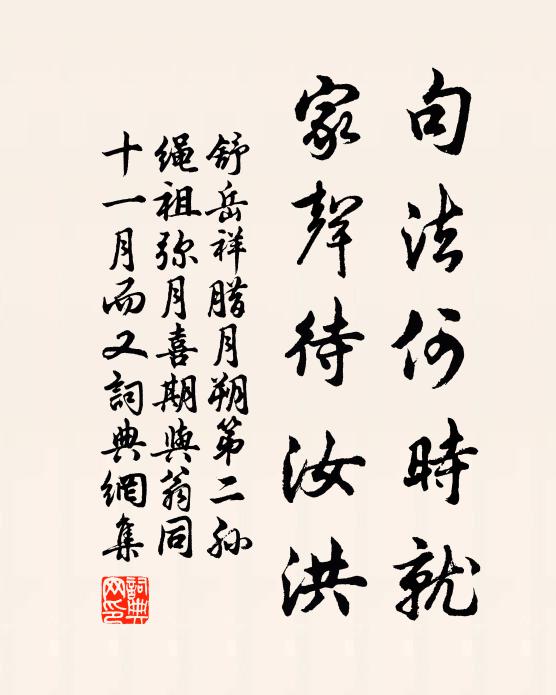 句法何時就
家聲待汝洪
舒岳祥腊月朔第二孙
绳祖弥月喜期與翁同
十一月而又詞典網集
詞典網印